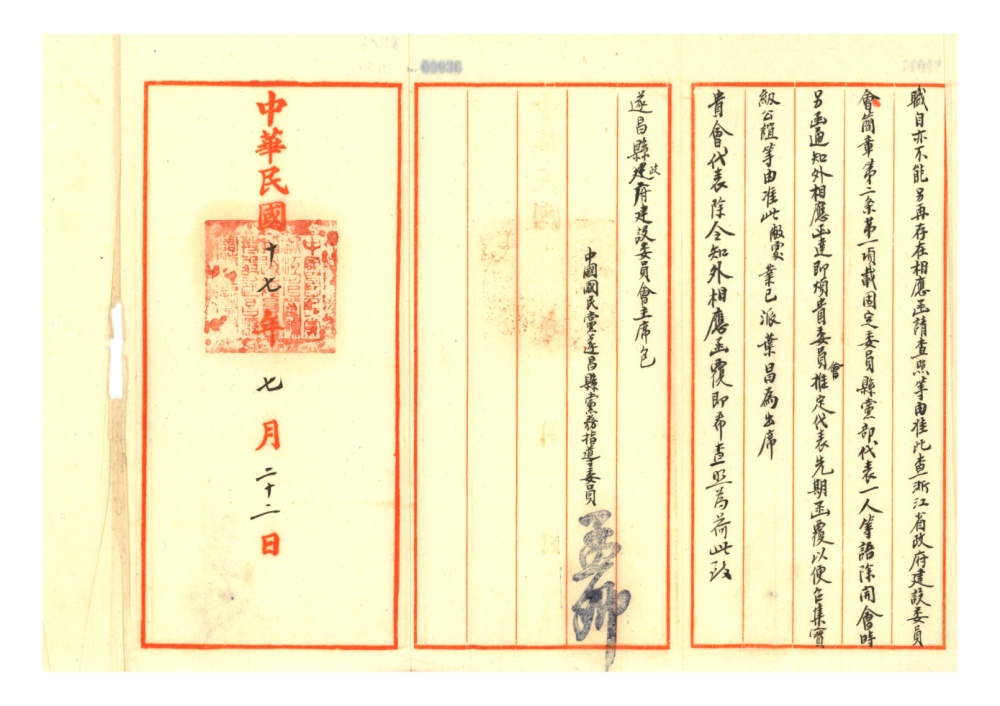 職自亦不能另再存在相應函請查照等由准此查浙江省政府建設委員
會簡章第二条第一項載固定委員縣黨部代表一人等語除開會時
另函通知外相應函達即煩貴委員會推定代表先期函覆以便召集實
級公誼等由准此敝處業已派葉昌為出席
貴會代表除令知外相應函覆即希查照為荷此致
遂昌縣政府建設委員會主席包
中國國民黨遂昌縣黨務指導委員
中華民國十七年七月二十二日
00036